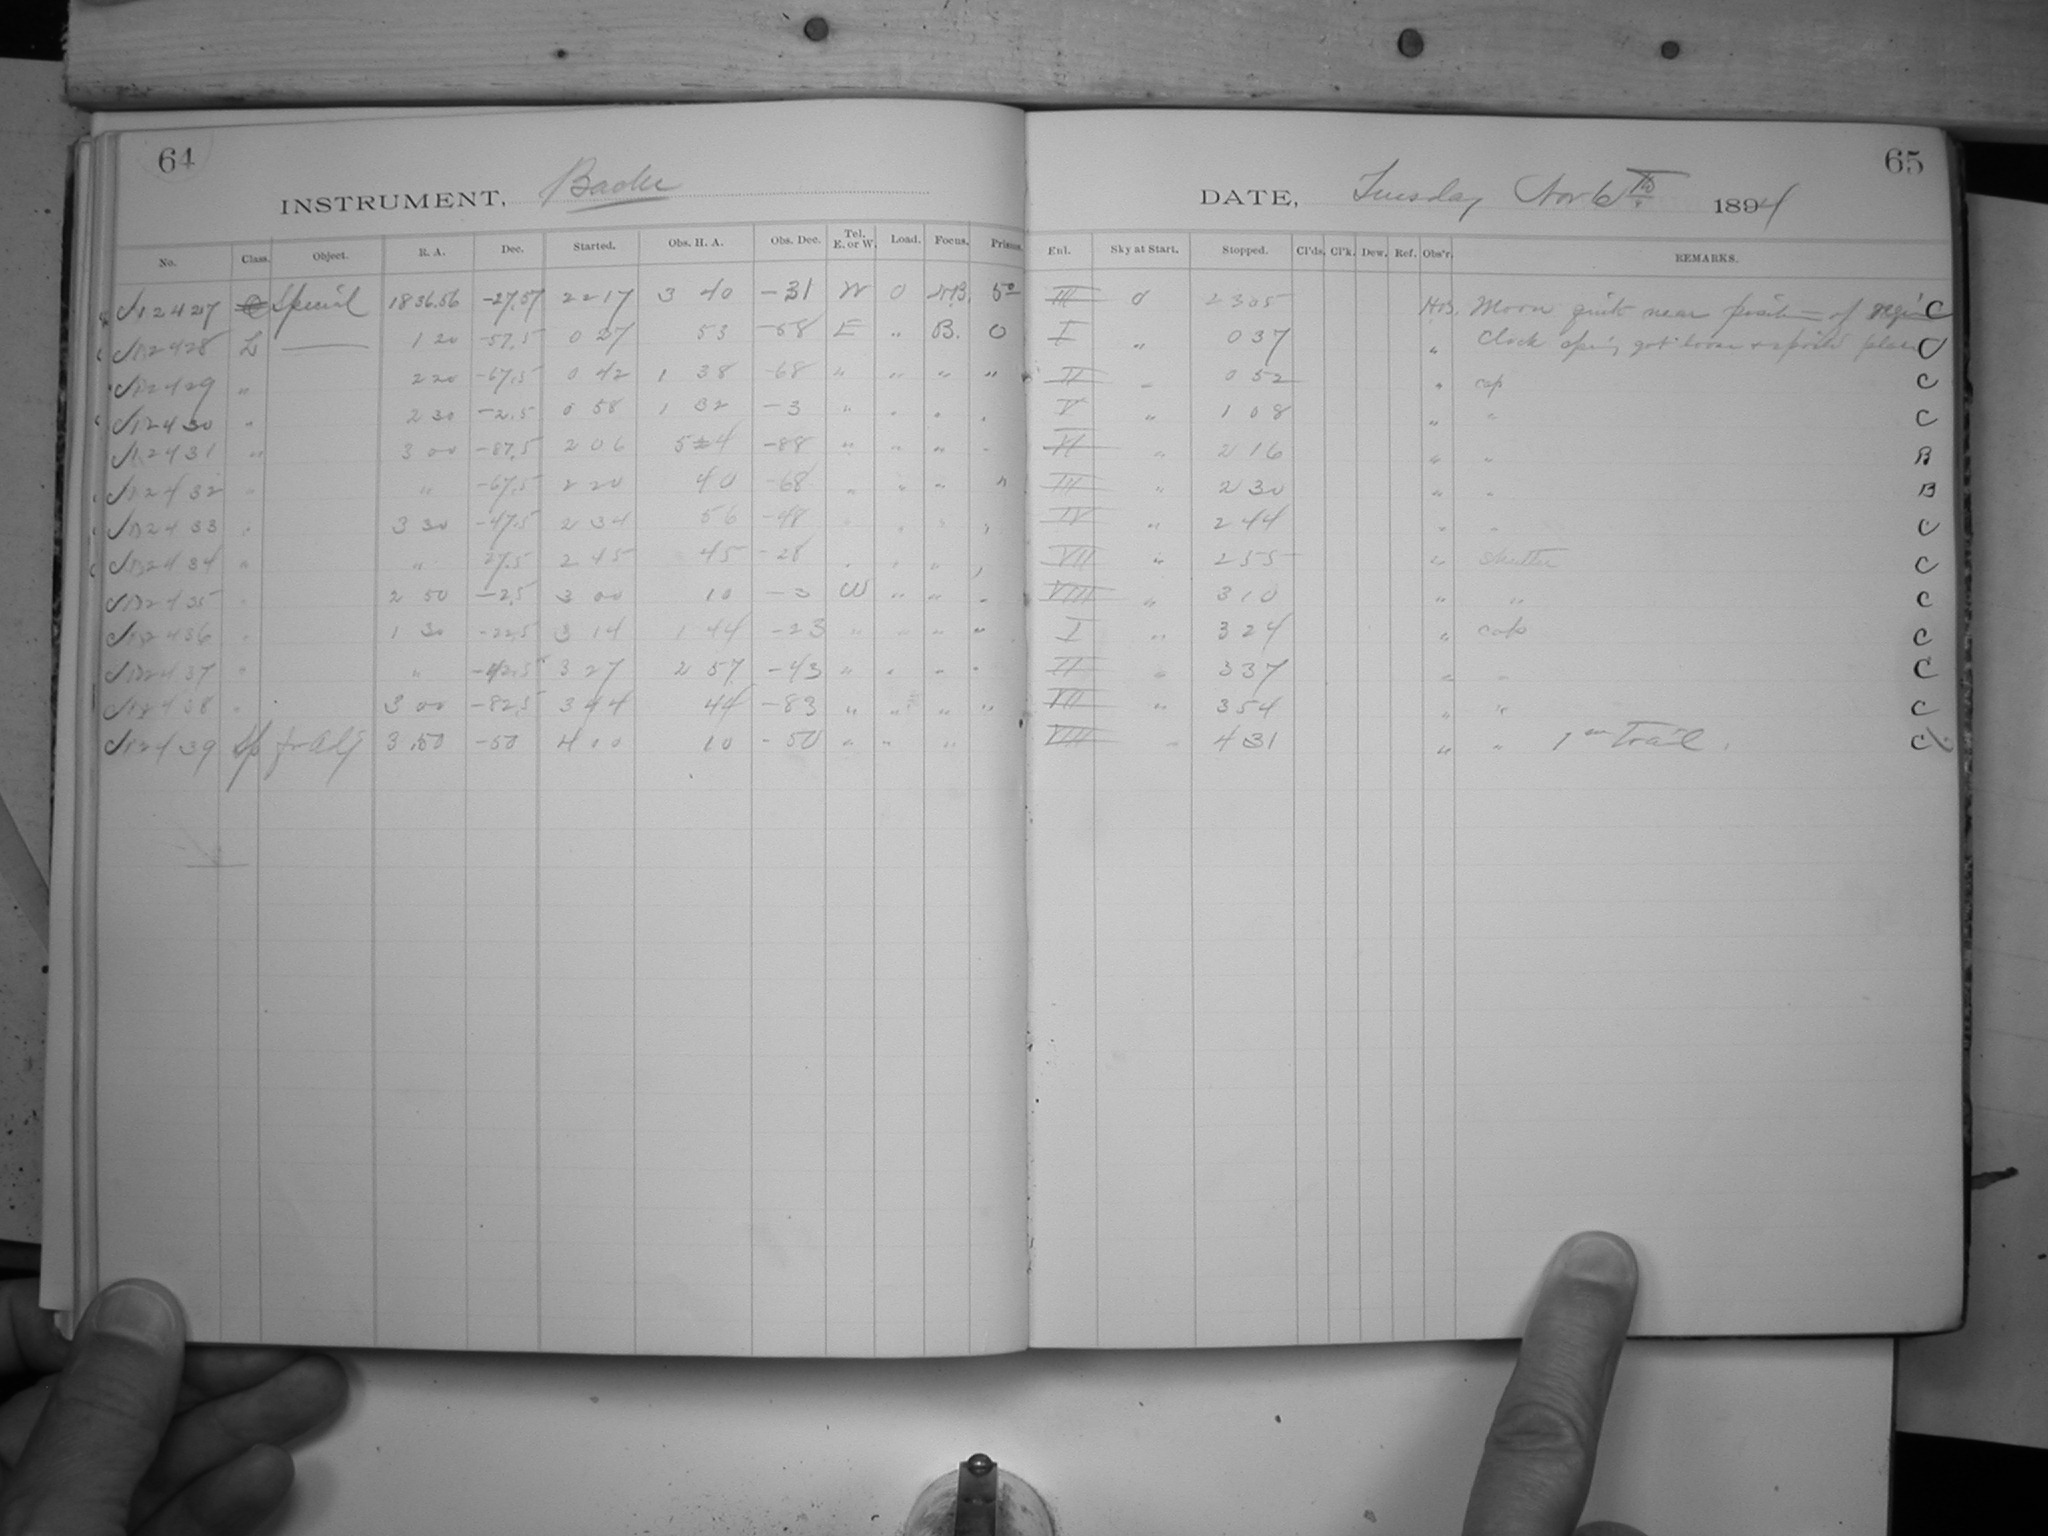 64
INSTRUMENT, Bache
No. Class. Object. R. A. Dec. Started. Obs. H. A. Obs. Dec. Tel. E. or W. Load. Focus. Prisms.
12427 Special 18 36.56 -27.57 22 17 3 40 -31 W 0 5°
12428 L 1 20 -57.5 0 27 53 -58 E " B. 0
12429 " 2 20 -67.5 0 42 1 38 -68 " " " "
12430 " 2 30 -2.5 0 58 1 32 -3 " " " "
12431 " 3 00 -87.5 2 06 54 -88 " " " "
12432 " " -67.5 2 20 40 -68 " " " "
12433 " 3 30 -47.5 2 34 56 -48 " " " "
12434 " " 27.5 2 45 45 -28 " " " "
12435 " 2 50 -2.5 3 00 10 -3 W " " "
12436 " 1 30 -22.5 3 14 1 44 -23 " " " "
12437 " " -42.5 3 27 2 57 -43 " " " "
12438 " 3 00 -82.5 3 44 44 -83 " " " "
12439 Sp for Adj 3.50 -50 4 00 10 -50 " " "
65
DATE, Tuesday Nov 6th 1894
Enl. Sky at Start. Stopped. Cl'ds. Cl'k. Dew. Ref. Obs'r. REMARKS.
III 0 23 05 Moon quite near position of region C
I " 0 37 " Clock spring got loose & spoiled plate C
II " 0 52 " cap C
V " 1 08 " " C
VI " 2 16 " " B
III " 2 30 " " B
IV " 2 44 " " C
VII " 2 55 " shutter C
VIII " 3 10 " " C
I " 3 24 " cap C
II " 3 37 " " C
VII " 3 54 " " C
VIII " 4 31 " " 1m Trail. C